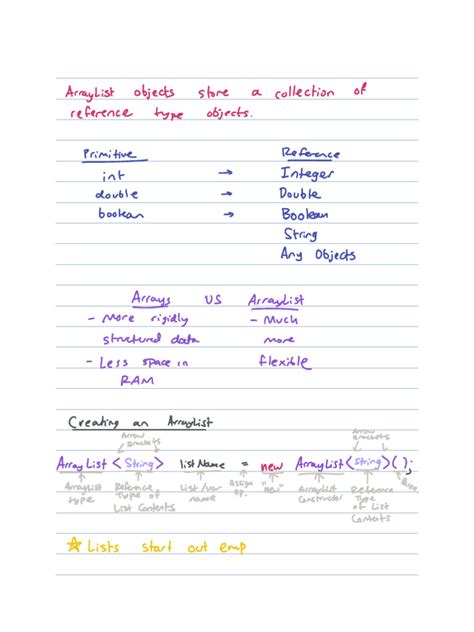 ArrayList objects store a collection of
reference type objects.
Primitive Reference
int → Integer
double → Double
boolean → Boolean
String
Any Objects
Arrays VS ArrayList
- More rigidly - Much
structured data more
- Less space in flexible
RAM
Creating an ArrayList
Arrow Arrow
Brackets Brackets
ArrayList <String> listName = new ArrayList<String>();
ArrayList Reference List/var Assign "new" ArrayList Reference
type Type of name op. Constructor Type
List Contents of List
Contents
☆ Lists start out emp